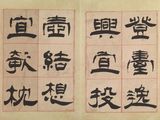 登臺逸
興宜投
壺結想
宜欹枕